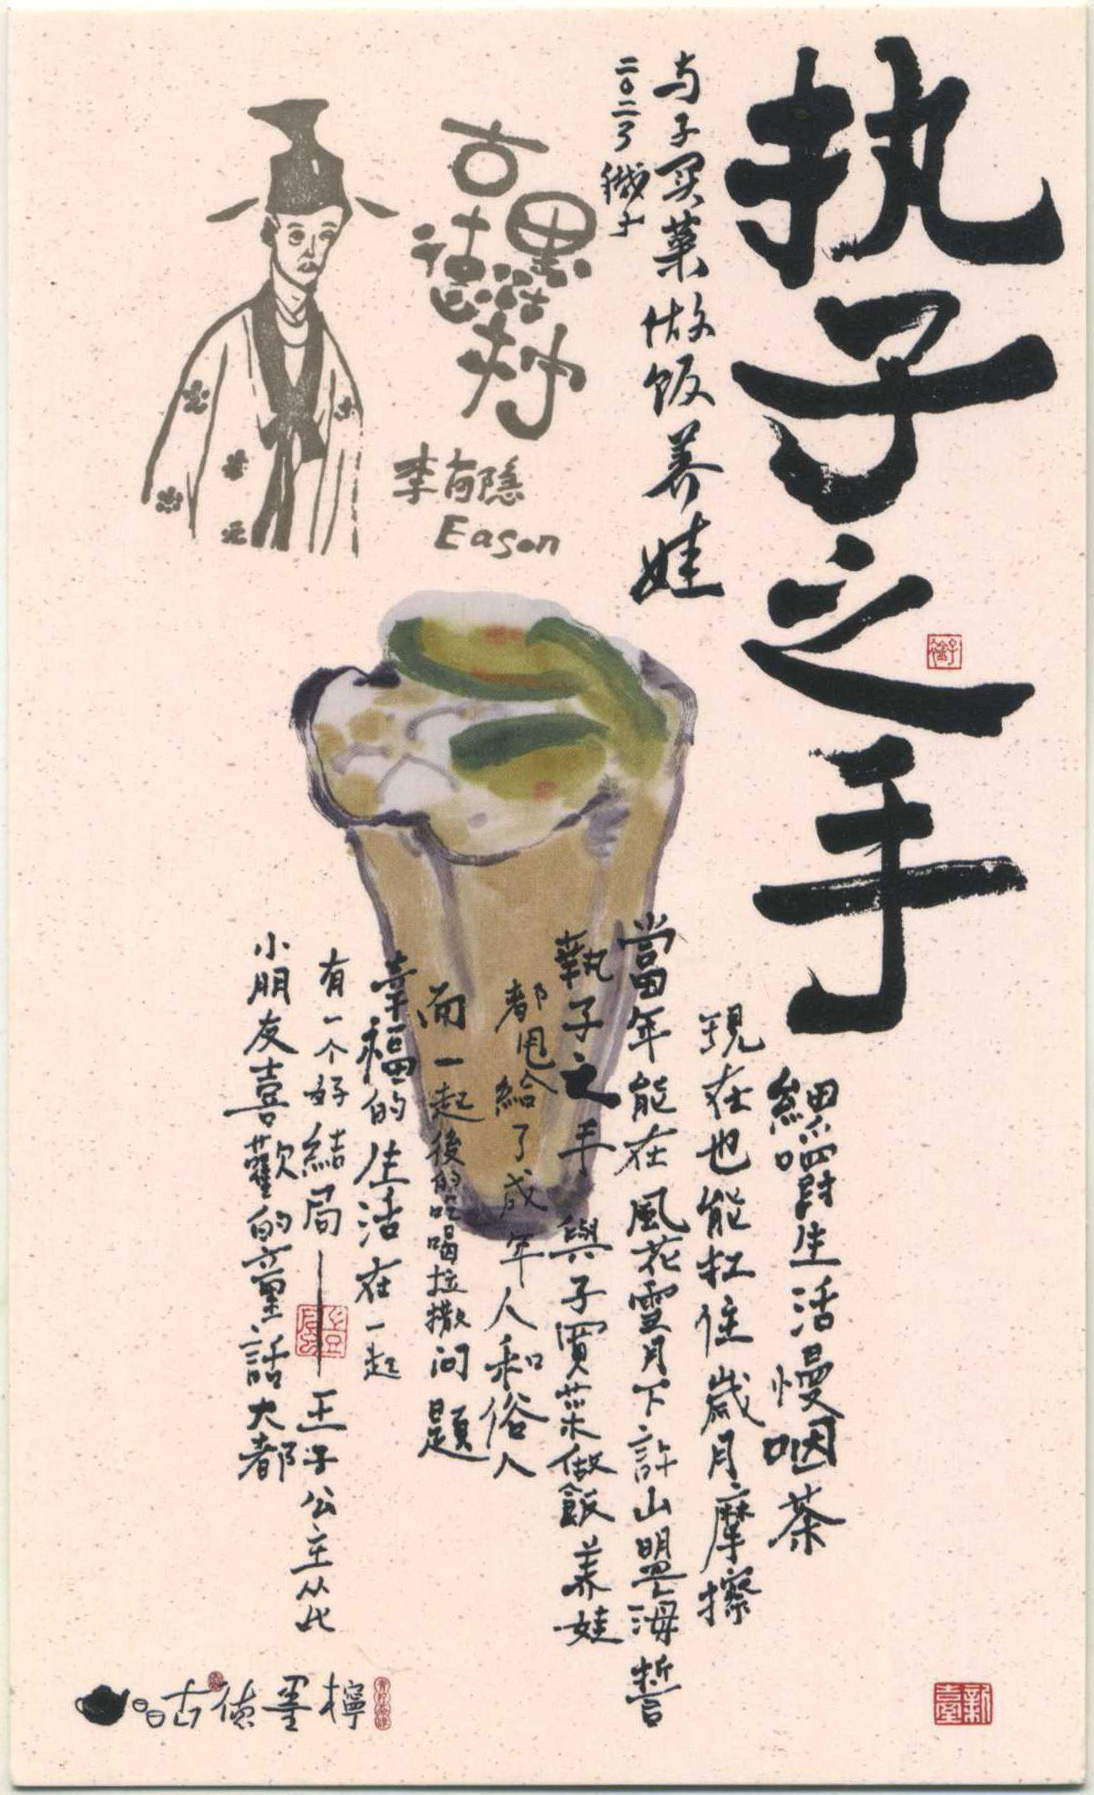 执子之手
与子买菜做饭养娃
古德墨柠
李有隐
Eason
細嚼生活慢咽茶
現在也能扛住歲月摩擦
當年能在風花雪月下許山盟海誓
執子之手 與子買菜做飯养娃
都甩給了成年人和俗人
而一起後的吃喝拉撒问題
幸福的生活在一起
有一个好結局—王子公主从此
小朋友喜歡的童話大都
古德墨檸